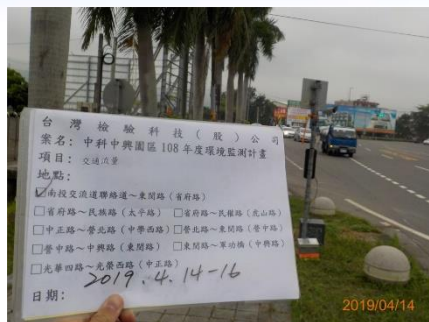 台灣檢驗科技(股)公司
案名：中科中興園區108年度環境監測計畫
項目：交通流量
地點：
☑南投交流道聯絡道～東閔路（省府路）
□省府路～民族路（太平路） □省府路～民權路（虎山路）
□中正路～營北路（中學西路） □營北路～東閔路（營中路）
□營中路～中興路（東閔路） □東閔路～軍功橋（中興路）
□光華四路～光榮西路（中正路）
日期：2019.4.14-16
2019/04/14